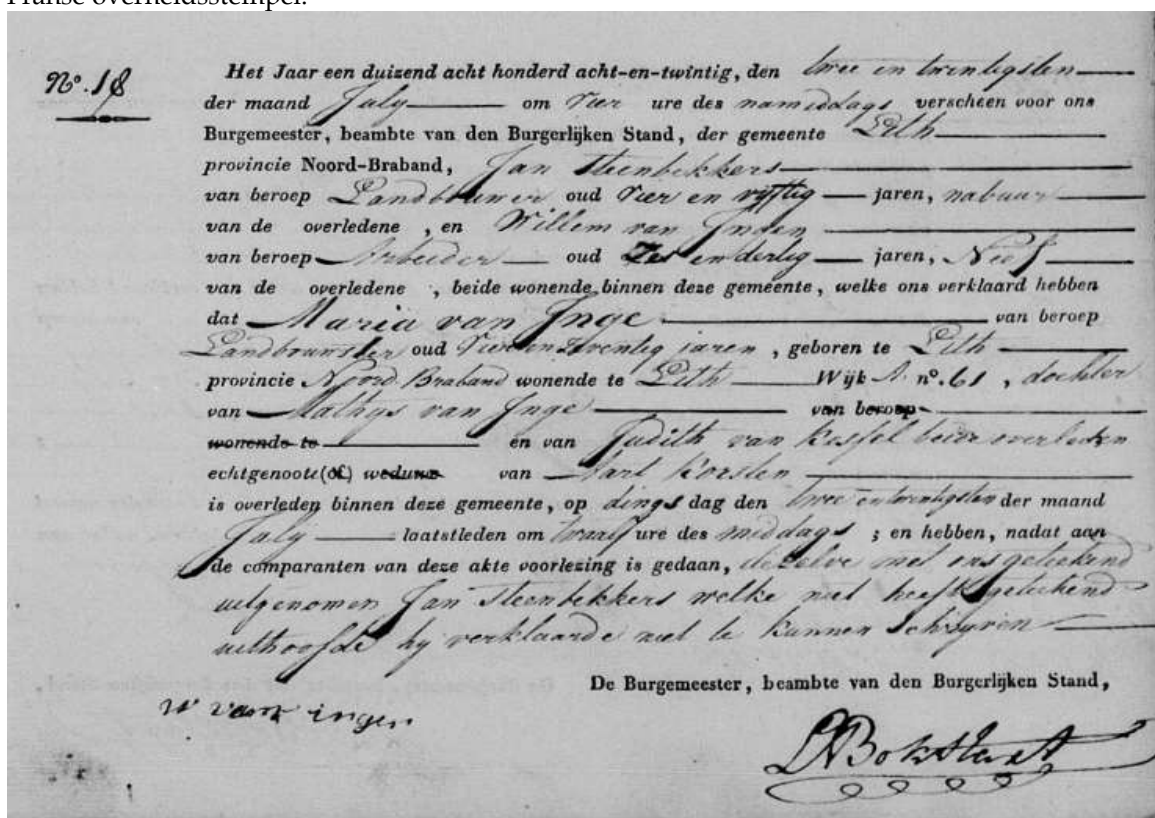 Franse overheidsstempel.
No. 18
Het Jaar een duizend acht honderd acht-en-twintig, den twee en twintigsten
der maand July om vier ure des namiddags verscheen voor ons
Burgemeester, beambte van den Burgerlijken Stand, der gemeente Lith
provincie Noord-Braband, Jan Steenbekkers
van beroep Landbouwer oud vier en vyftig jaren, nabuur
van de overledene , en Willem van Ingen
van beroep Arbeider oud Zes en dertig jaren, Neef
van de overledene , beide wonende binnen deze gemeente, welke ons verklaard hebben
dat Maria van Inge van beroep
Landbouwster oud jaren , geboren te Lith
provincie Noord Braband wonende te Lith Wijk A. no. 61 , dochter
van Mathys van Inge van beroep
wonende te en van Judith van Kessel beide overleden
echtgenoote (of) weduwe van Bart Korsten
is overleden binnen deze gemeente, op dings dag den twee en twintigsten der maand
July laatstleden om twaalf ure des middags ; en hebben, nadat aan
de comparanten van deze akte voorlezing is gedaan, dezelve met ons geteekend
uitgenomen Jan Steenbekkers welke niet heeft geteekend
uithoofde hy verklaarde niet te kunnen Schryven
De Burgemeester, beambte van den Burgerlijken Stand,
W van ingen